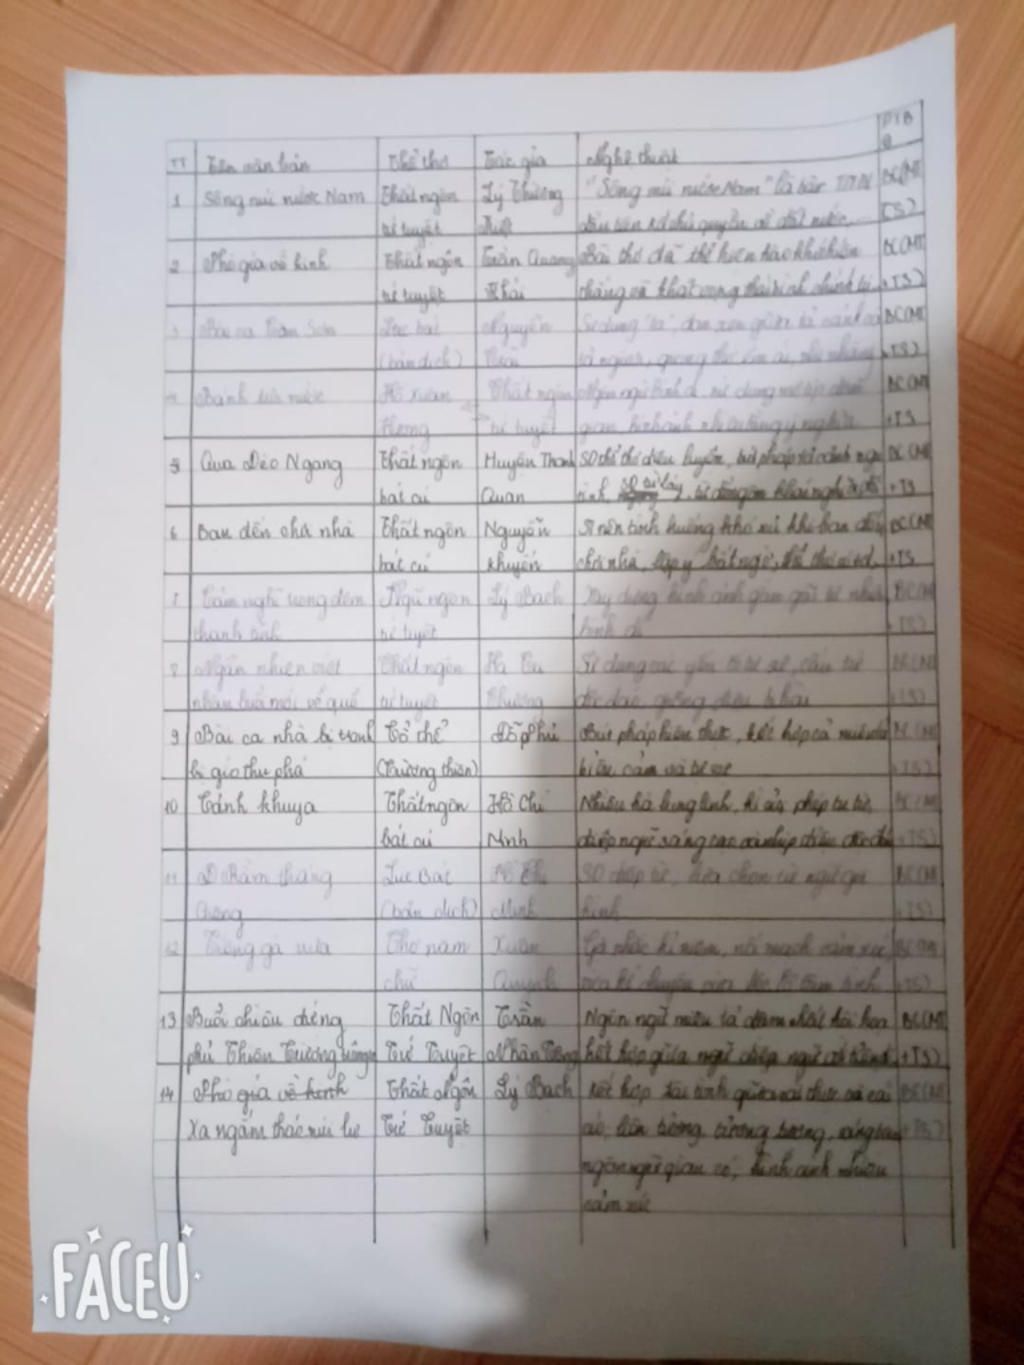 TT Tên văn bản Thể thơ Tác giả Nghệ thuật PTB
Đ
1 Sông núi nước Nam Thất ngôn Lý Thường "Sông núi nước Nam" là bản BC(MT
tứ tuyệt Kiệt đầu tiên chủ quyền về đất nước +TS)
2 Phò giá về kinh Thất ngôn Trần Quang Bài thơ đã thể hiện hào khí chiến BC(MT
tứ tuyệt Khải thắng và khát vọng thái bình thịnh trị +TS)
3 Bài ca Côn Sơn Lục bát Nguyễn Sử dụng "ta", đan xen giữa tả cảnh và BC(MT
(bản dịch) Trãi tả người, giọng thơ êm ái, nhẹ nhàng +TS)
4 Bánh trôi nước Hồ Xuân Thất ngôn Ngôn ngữ bình dị, sử dụng dân BC(MT
Hương tứ tuyệt gian, hình ảnh nhiều tầng ý nghĩa +TS
5 Qua Đèo Ngang Thất ngôn Huyện Thanh SD thể thơ điêu luyện, bút pháp tả cảnh ngụ BC(MT
bát cú Quan tình, từ láy, từ đồng âm khác nghĩa +TS
6 Bạn đến chơi nhà Thất ngôn Nguyễn tình huống khó xử khi bạn đến BC(MT
bát cú Khuyến chơi nhà, lập ý bất ngờ, thể thơ +TS
7 Cảm nghĩ trong đêm Ngũ ngôn Lý Bạch Xây dựng hình ảnh gần gũi BC(MT
thanh tĩnh tứ tuyệt bình dị +TS)
8 Ngẫu nhiên viết Thất ngôn Hạ Tri Sử dụng các yếu tố tự sự, cấu tứ BC(MT
nhân buổi mới về quê tứ tuyệt Chương độc đáo, giọng điệu bi hài +TS)
9 Bài ca nhà bị tranh Cổ thể Đỗ Phủ Bút pháp hiện thực, kết hợp cả miêu tả BC(MT
bị gió thu phá (Trường thiên) biểu cảm và tự sự +TS)
10 Cảnh khuya Thất ngôn Hồ Chí Nhiều hả lung linh, kì ảo, phép tu từ, BC(MT
bát cú Minh điệp ngữ sáng tạo và nhịp điệu độc đáo +TS)
11 Rằm tháng Lục Bát Hồ Chí SD điệp từ, lựa chọn từ ngữ gợi BC(MT
Giêng (bản dịch) Minh hình +TS)
12 Tiếng gà trưa Thơ năm Xuân Gà nhắc kỉ niệm, nối mạch cảm xúc, BC(MT
chữ Quỳnh +TS)
13 Buổi chiều đứng Thất Ngôn Trần Ngôn ngữ miêu tả đậm chất hội họa BC(MT
phủ Thiên Trường trông Tứ Tuyệt Nhân Tông kết hợp giữa ngữ điệp ngữ +TS)
14 Phò giá về kinh Thất Ngôn Lý Bạch kết hợp tài tình giữa cái thực và cái BC(MT
Xa ngắm thác núi Lư Tứ Tuyệt ảo, liên tưởng, tưởng tượng, sáng tạo +TS)
ngôn ngữ giàu có, hình ảnh nhiều
cảm xúc
FACEU